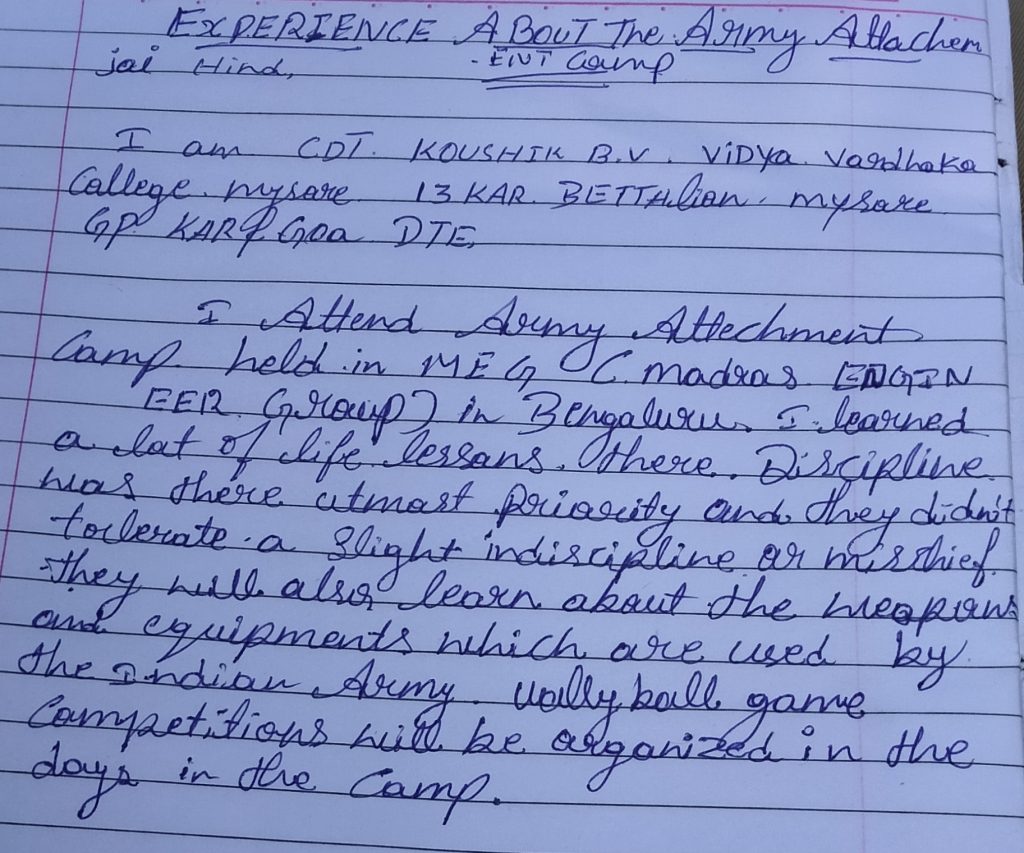 EXPERIENCE ABOUT The Army Attachem
jai Hind, -ENT Camp
I am CDT. KOUSHIK B.V. ViDYa Vardhaka
College. mysore 13 KAR. BETTAlion. mysore
GP KAR & Goa DTE,
I Attend Army Attechment
Camp held in MEG (madras ENGIN
EER Group) in Bengaluru. I learned
a lot of life lessons. there. Discipline
was there utmost priority and they didn't
tollerate a slight indiscipline or misthief.
they will also learn about the weapons
and equipments which are used by
the Indian Army. Vollyball game
Competitions will be organized in the
days in the Camp.